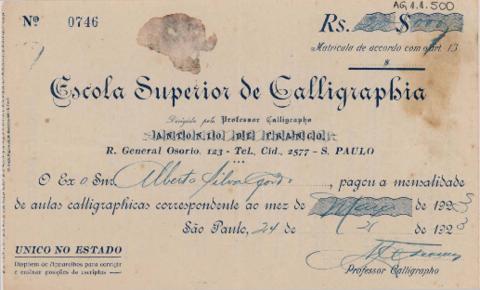 AG.1.1.500
Nº 0746
Rs. $
Matricula de accordo com o art. 13
$
Escola Superior de Calligraphia
Dirigida pelo Professor Calligrapho
ANTONIO DE FRANCO
R. General Osorio, 123 - Tel., Cid., 2577 - S. PAULO
O Exº Snr. Alberto Silva , pagou a mensalidade
de aulas calligraphicas correspondente ao mez de Maio 1923
São Paulo, 24 de 1923
UNICO NO ESTADO
Dispõem de Apparelhos para corrigir
e ensinar posições de escriptas
Professor Calligrapho